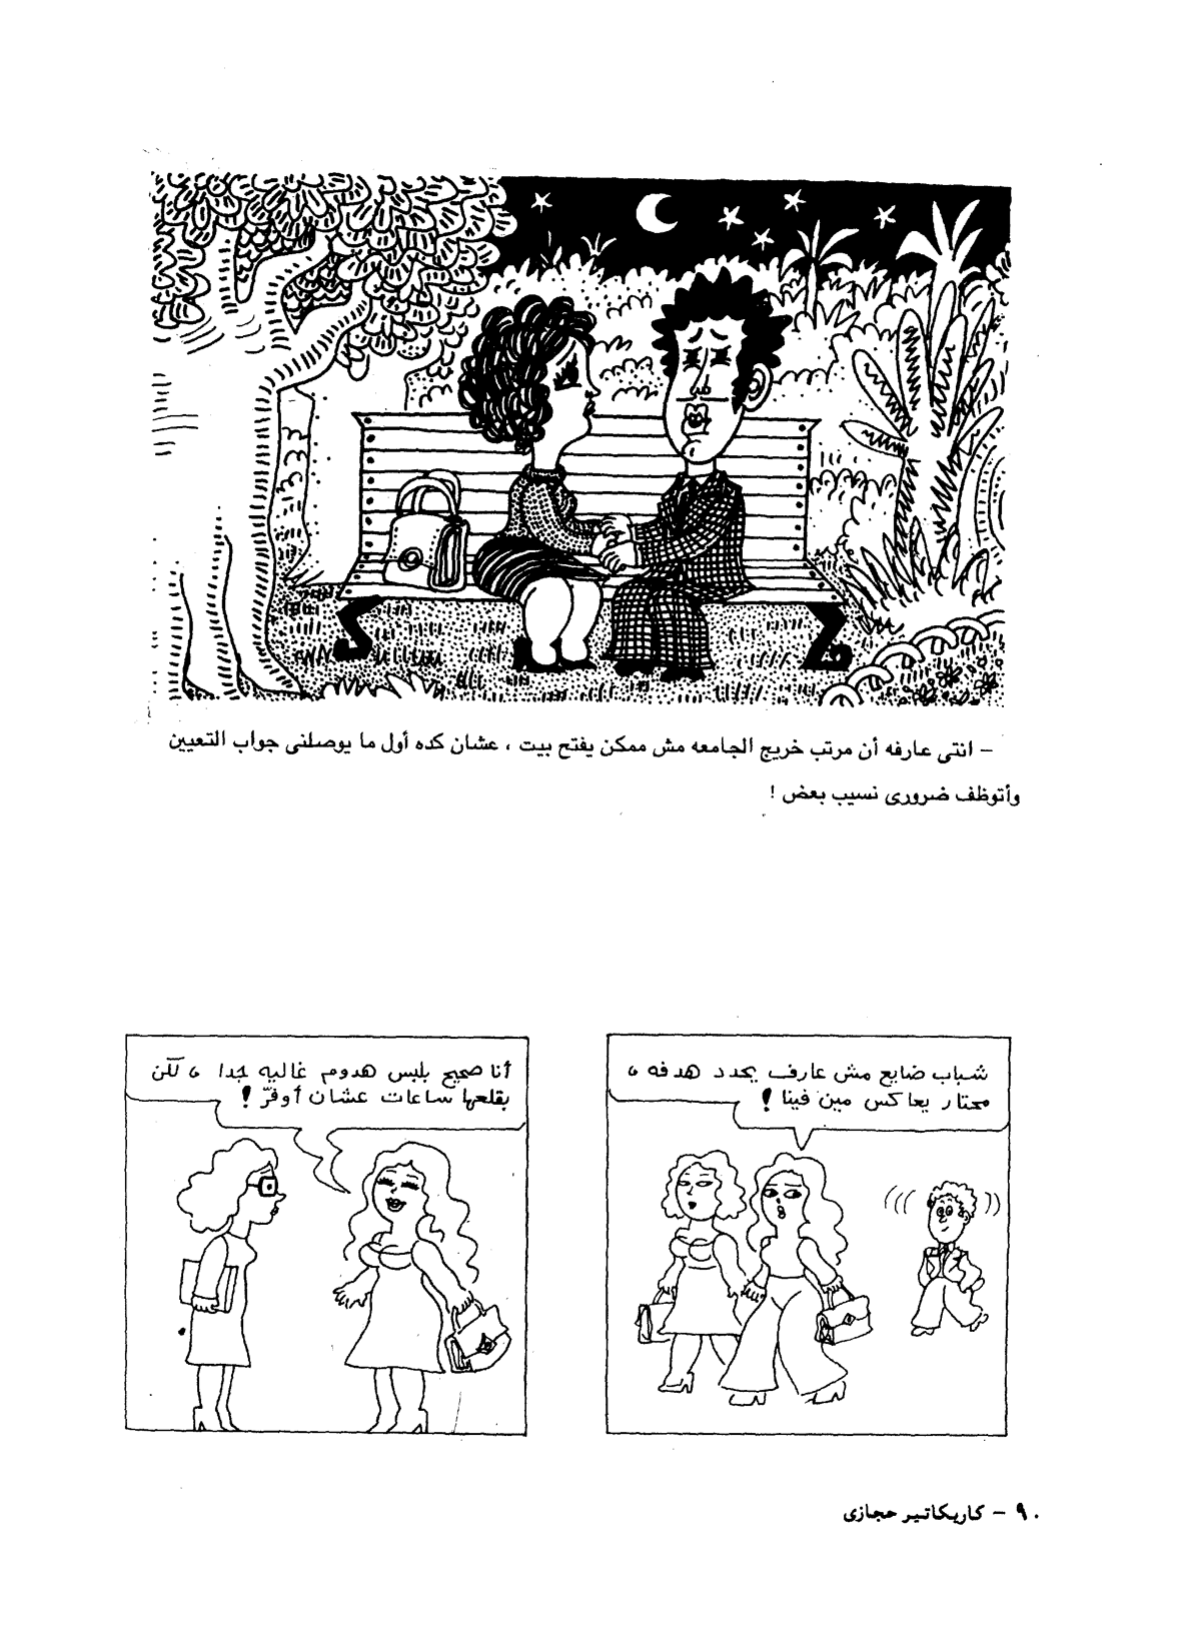 – انتى عارفه أن مرتب خريج الجامعه مش ممكن يفتح بيت ، عشان كده أول ما يوصلنى جواب التعيين
وأتوظف ضرورى نسيب بعض !
شباب ضايع مش عارف يحدد هدفه ،
محتار يعاكس مين فينا !
أنا صحيح بلبس هدوم غاليه جدا ، لكن
بقلعها ساعات عشان أوفّر !
٩٠ – كاريكاتير حجازى